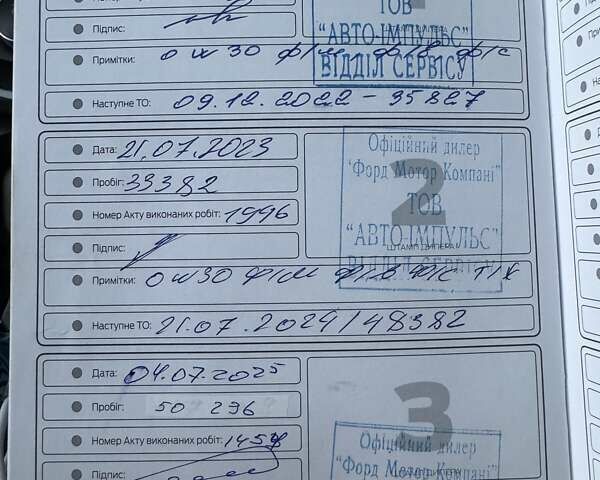 Підпис:
ТОВ
"АВТО-ІМПУЛЬС"
Примітки: 0W30 Ф/М Ф/В Ф/С
ВІДДІЛ СЕРВІСУ
Наступне ТО: 09.12.2022 - 35827
Дата: 21.07.2023
Офіційний дилер
Пробіг: 33382
"Форд Мотор Компані"
2
ТОВ
Номер Акту виконаних робіт: 1996
"АВТО-ІМПУЛЬС"
Підпис:
ШТАМП ДИЛЕРА
ВІДДІЛ СЕРВІСУ
Примітки: 0W30 Ф/М Ф/В Ф/С Т/Х
Наступне ТО: 21.07.2024/48382
Дата: 04.07.2025
Пробіг: 50 296
3
Номер Акту виконаних робіт: 1457
Офіційний дилер
Підпис:
"Форд Мотор Компані"